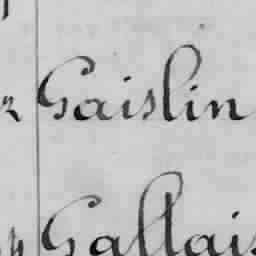 Gaislin
Gallais